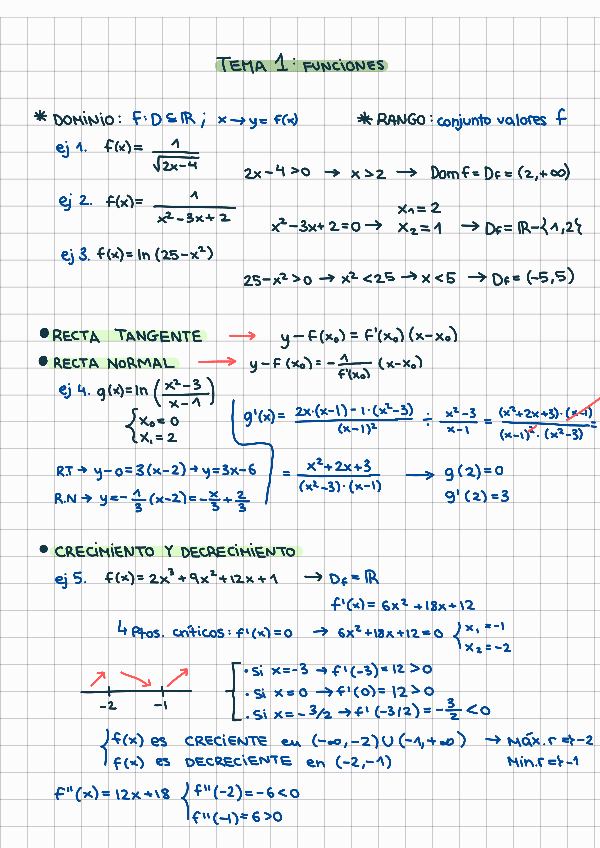 TEMA 1: FUNCIONES
* DOMINIO: F: D ⊆ ℝ ; x → y = f(x) * RANGO: conjunto valores f
ej 1. f(x) = 1/√(2x-4)
2x-4>0 → x>2 → Dom f = Df = (2,+∞)
ej 2. f(x) = 1/(x²-3x+2)
x²-3x+2=0 → x₁=2 x₂=1 → Df = ℝ-{1,2}
ej 3. f(x) = ln (25-x²)
25-x²>0 → x²<25 → x<5 → Df = (-5,5)
• RECTA TANGENTE → y-f(x₀) = f'(x₀) (x-x₀)
• RECTA NORMAL → y-f(x₀) = -1/f'(x₀) (x-x₀)
ej 4. g(x) = ln ((x²-3)/(x-1))
{ x₀=0 x₁=2
g'(x) = (2x·(x-1)-1·(x²-3))/(x-1)² ÷ (x²-3)/(x-1) = ((x²+2x+3)·(x-1))/((x-1)²·(x²-3)) =
= (x²+2x+3)/((x²-3)·(x-1)) → g(2)=0
g'(2)=3
R.T → y-0=3(x-2) → y=3x-6
R.N → y=-1/3 (x-2) = -x/3 + 2/3
• CRECIMIENTO Y DECRECIMIENTO
ej 5. f(x) = 2x³+9x²+12x+1 → Df = ℝ
f'(x) = 6x²+18x+12
↳ Ptos. críticos: f'(x)=0 → 6x²+18x+12=0 { x₁=-1 x₂=-2
-2 -1
· si x=-3 → f'(-3)=12>0
· si x=0 → f'(0)=12>0
· si x=-3/2 → f'(-3/2)=-3/2<0
f(x) es CRECIENTE en (-∞,-2)∪(-1,+∞) → Máx.r ⇒ -2
f(x) es DECRECIENTE en (-2,-1) Min.r ⇒ -1
f''(x) = 12x+18 { f''(-2)=-6<0
f''(-1)=6>0